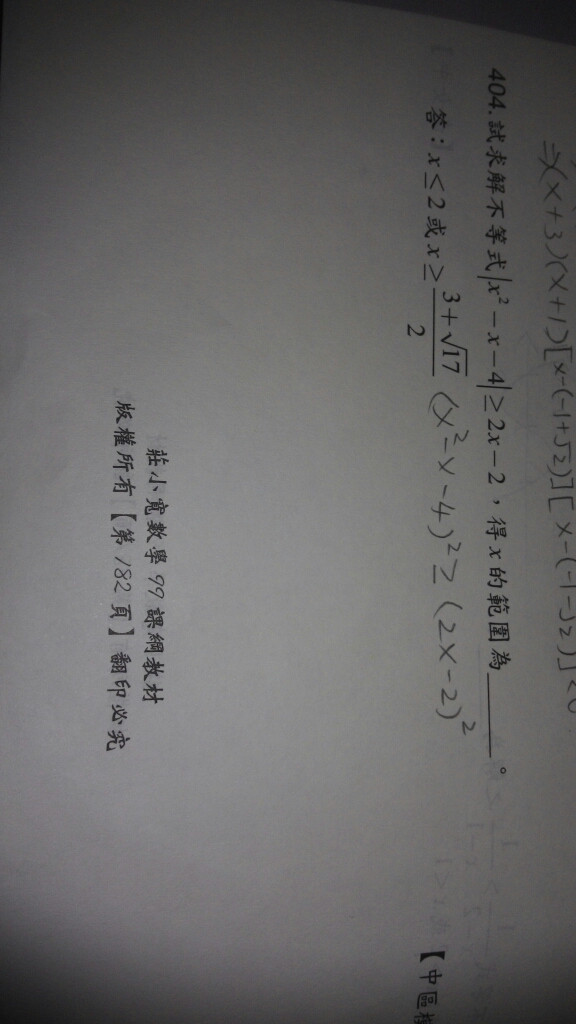 ⇒(x+3)(x+1)[x-(-1+√2)][x-(-1-√2)]<0
404.試求解不等式|x²-x-4|≥2x-2，得x的範圍為______。
答：x≤2或x≥(3+√17)/2 (x²-x-4)²≥(2x-2)²
【中區
莊小寬數學99課綱教材
版權所有【第182頁】翻印必究